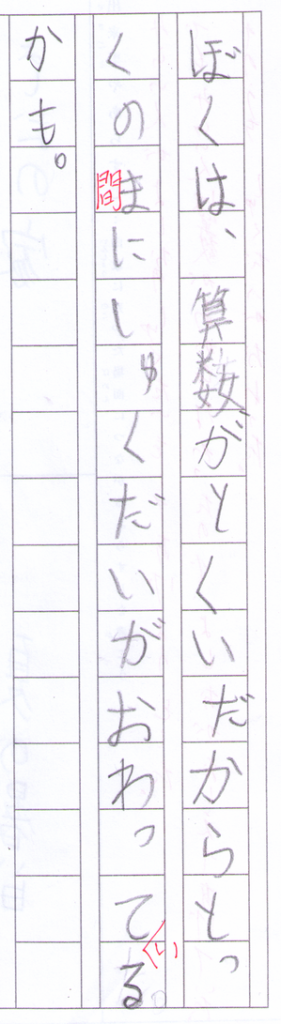 ぼくは、算数がとくいだからとっ
くのまにしゅくだいがおわってる
かも。
間
い